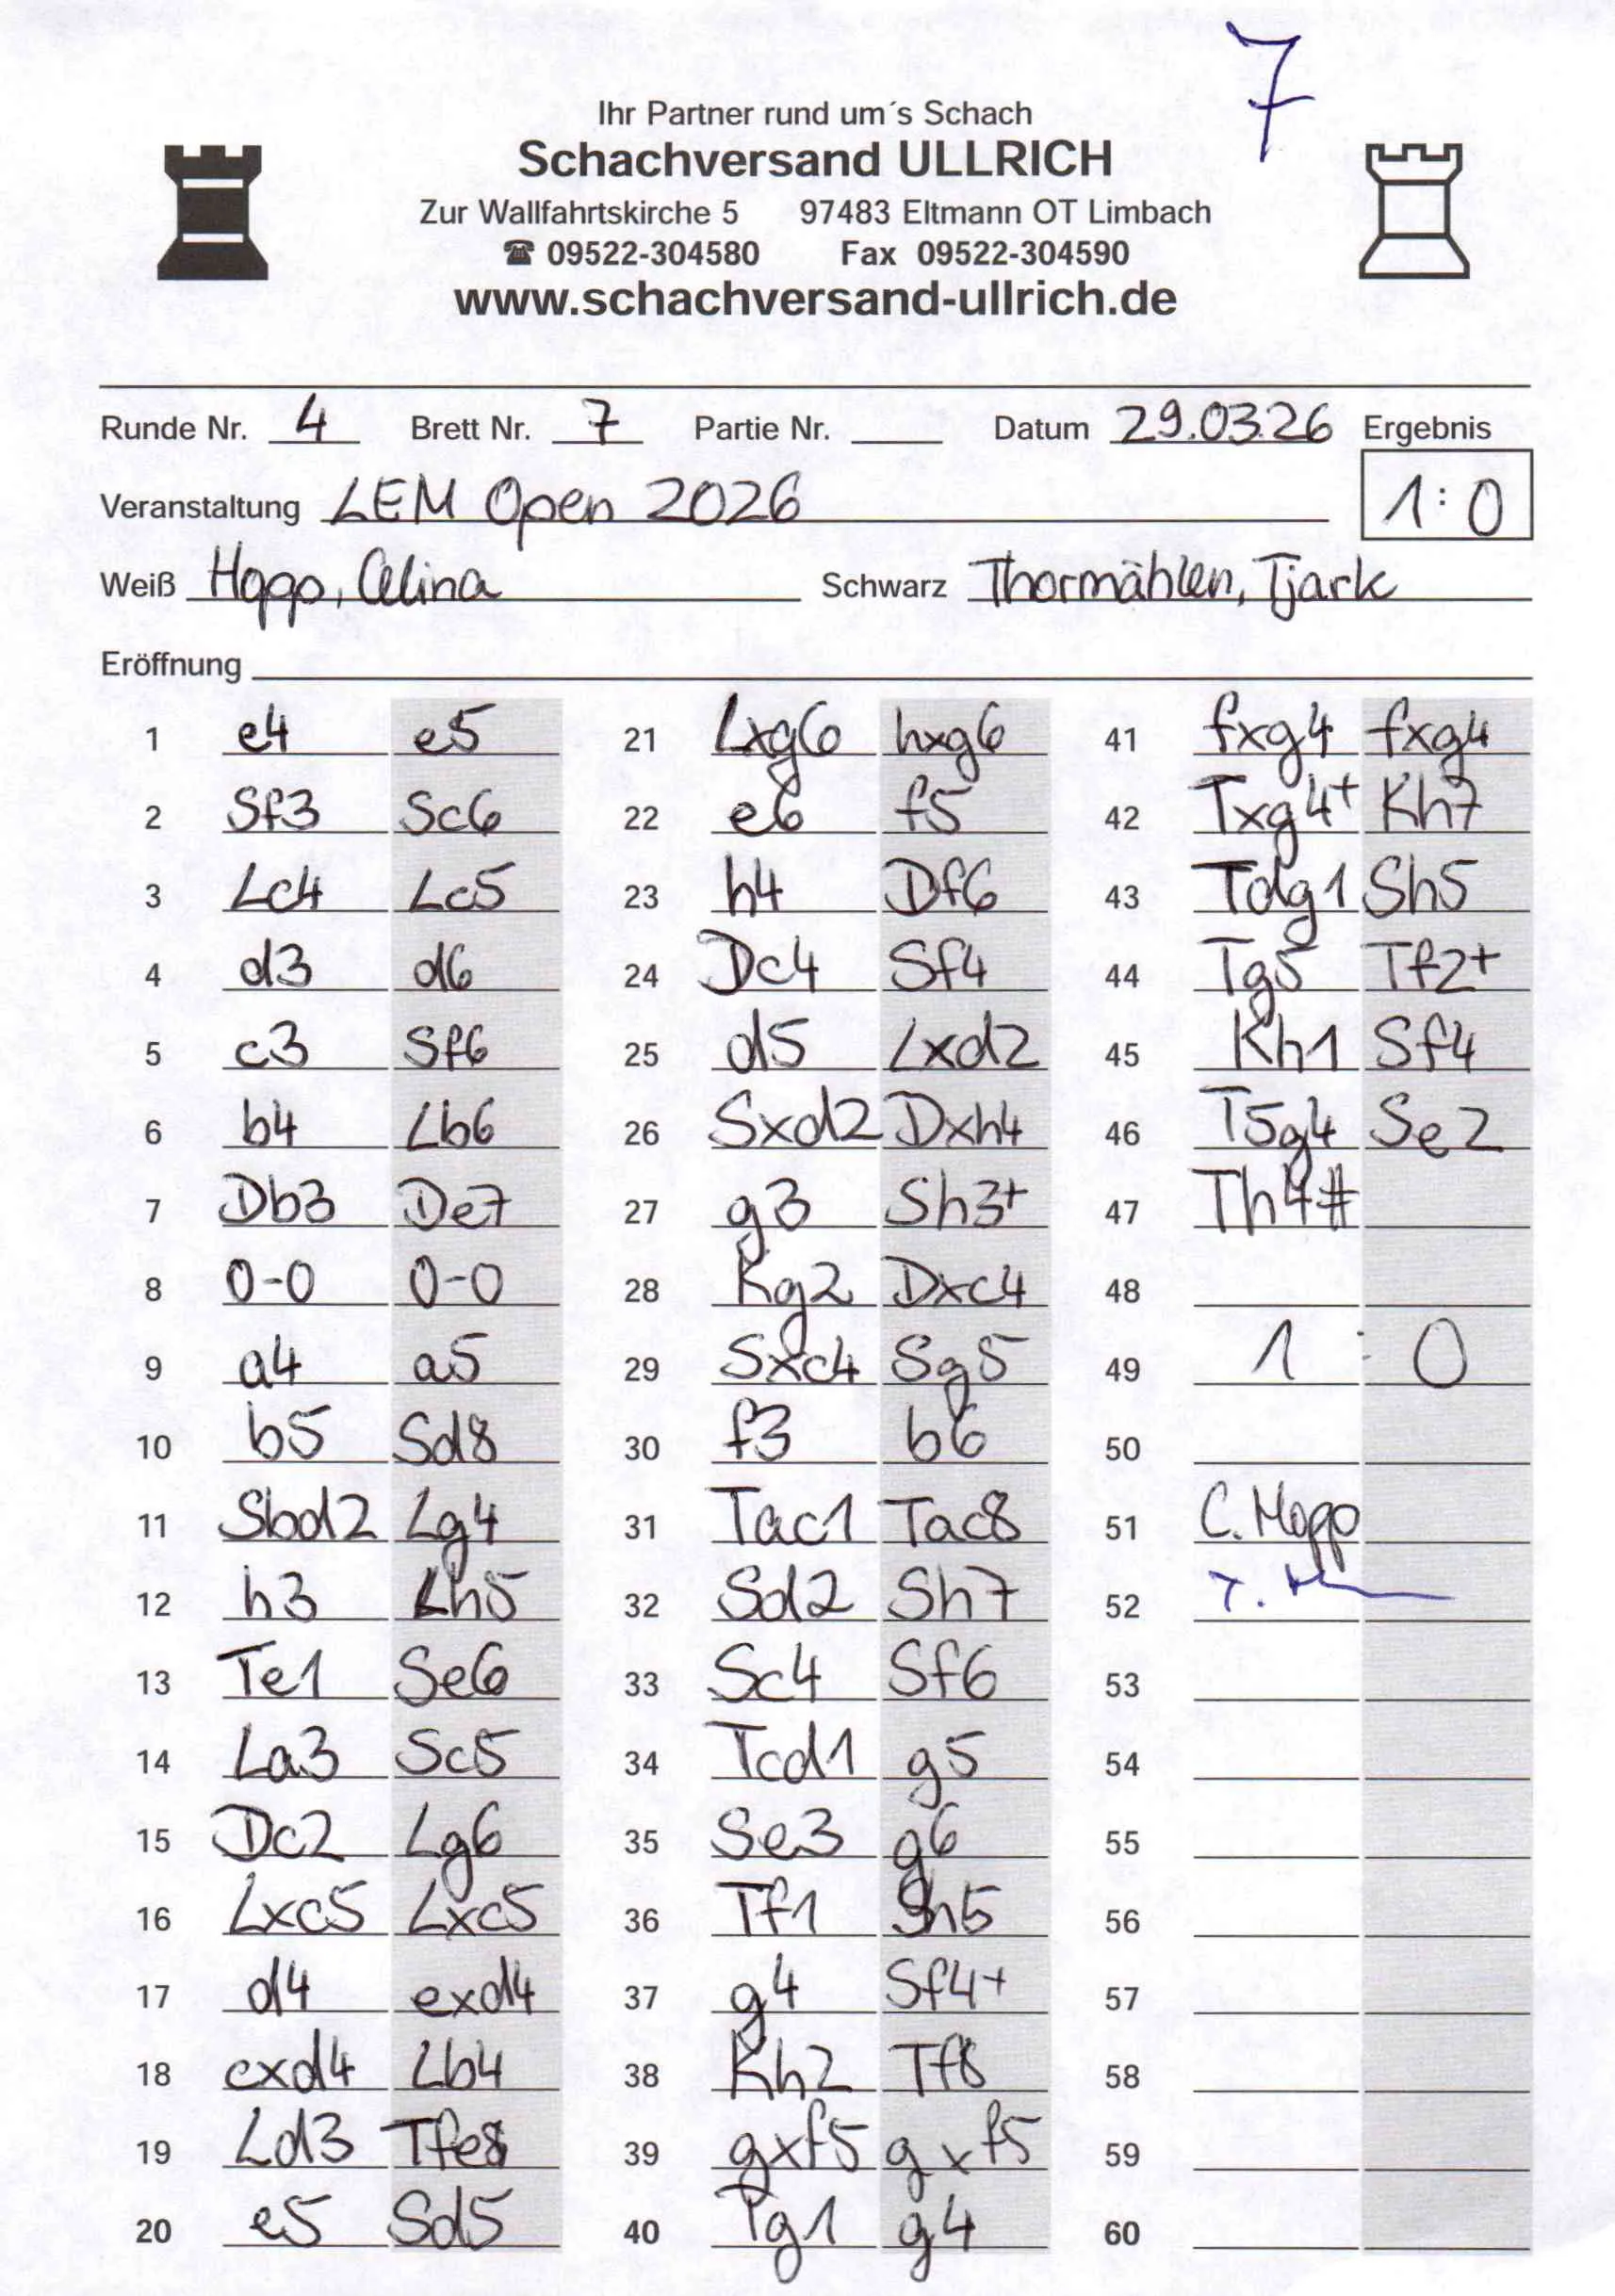 7
Ihr Partner rund um´s Schach
Schachversand ULLRICH
Zur Wallfahrtskirche 5 97483 Eltmann OT Limbach
☎ 09522-304580 Fax 09522-304590
www.schachversand-ullrich.de
Runde Nr. 4 Brett Nr. 7 Partie Nr. Datum 29.03.26 Ergebnis
Veranstaltung LEM Open 2026 1:0
Weiß Hopp, Celina Schwarz Thormählen, Tjark
Eröffnung
1 e4 e5 21 Lxg6 hxg6 41 fxg4 fxg4
2 Sf3 Sc6 22 e6 f5 42 Txg4+ Kh7
3 Lc4 Lc5 23 h4 Df6 43 Tdg1 Sh5
4 d3 d6 24 Dc4 Sf4 44 Tg5 Tf2+
5 c3 Sf6 25 d5 Lxd2 45 Kh1 Sf4
6 b4 Lb6 26 Sxd2 Dxh4 46 T5g4 Se2
7 Db3 De7 27 g3 Sh3+ 47 Th4#
8 0-0 0-0 28 Kg2 Dxc4 48
9 a4 a5 29 Sxc4 Sg5 49 1 : 0
10 b5 Sd8 30 f3 b6 50
11 Sbd2 Lg4 31 Tac1 Tac8 51 C. Hopp
12 h3 Lh5 32 Sd2 Sh7 52 T.
13 Te1 Se6 33 Sc4 Sf6 53
14 La3 Sc5 34 Tcd1 g5 54
15 Dc2 Lg6 35 Se3 g6 55
16 Lxc5 Lxc5 36 Tf1 Sh5 56
17 d4 exd4 37 g4 Sf4+ 57
18 cxd4 Lb4 38 Kh2 Tf8 58
19 Ld3 Tfe8 39 gxf5 gxf5 59
20 e5 Sd5 40 Tg1 g4 60